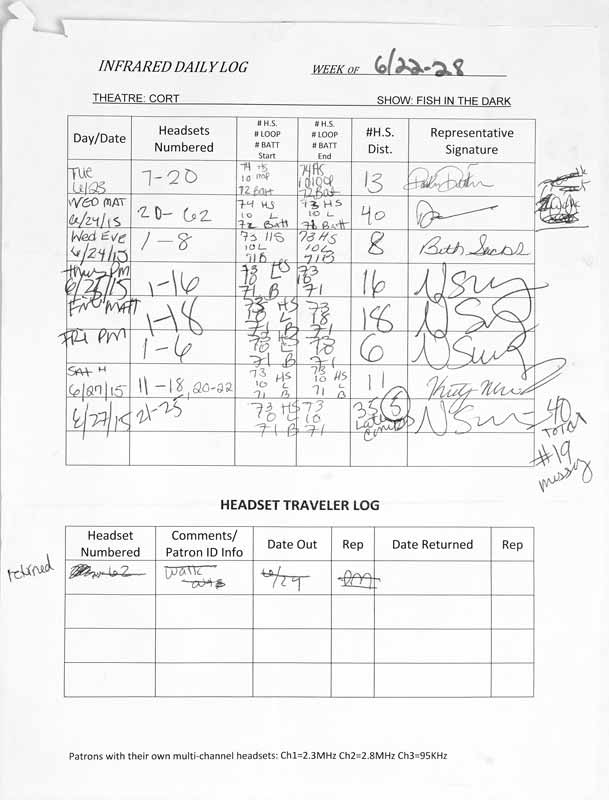 INFRARED DAILY LOG WEEK OF 6/22-28
THEATRE: CORT SHOW: FISH IN THE DARK
Day/Date Headsets Numbered # H.S. # LOOP # BATT Start # H.S. # LOOP # BATT End #H.S. Dist. Representative Signature
Tue 6/23 7-20 74 HS 10 loop 72 Batt 74 HS 10 loop 72 Batt 13
WED MAT 6/24/15 20-62 74 HS 10 L 72 Batt 73 HS 10 L Batt 40
Wed Eve 6/24/15 1-8 73 HS 10L 71B 73 HS 10L 71B 8 Beth
Thur PM 6/25/15 1-16 73 HS 10 L 71 B 73 10 71 16
MATT 1-18 73 HS 10 L 71 B 73 10 71 18
FRI PM 1-6 73 HS 10 L 71 B 73 10 71 6
SAT M 6/27/15 11-18, 20-22 73 HS 10 L 71 B 73 HS 10 L 71 B 11
6/27/15 21-25 73 HS 10 L 71 B 73 10 71 35 5
40 TOTAL
#19
HEADSET TRAVELER LOG
Headset Numbered Comments/ Patron ID Info Date Out Rep Date Returned Rep
returned 62 6/29
Patrons with their own multi-channel headsets: Ch1=2.3MHz Ch2=2.8MHz Ch3=95KHz